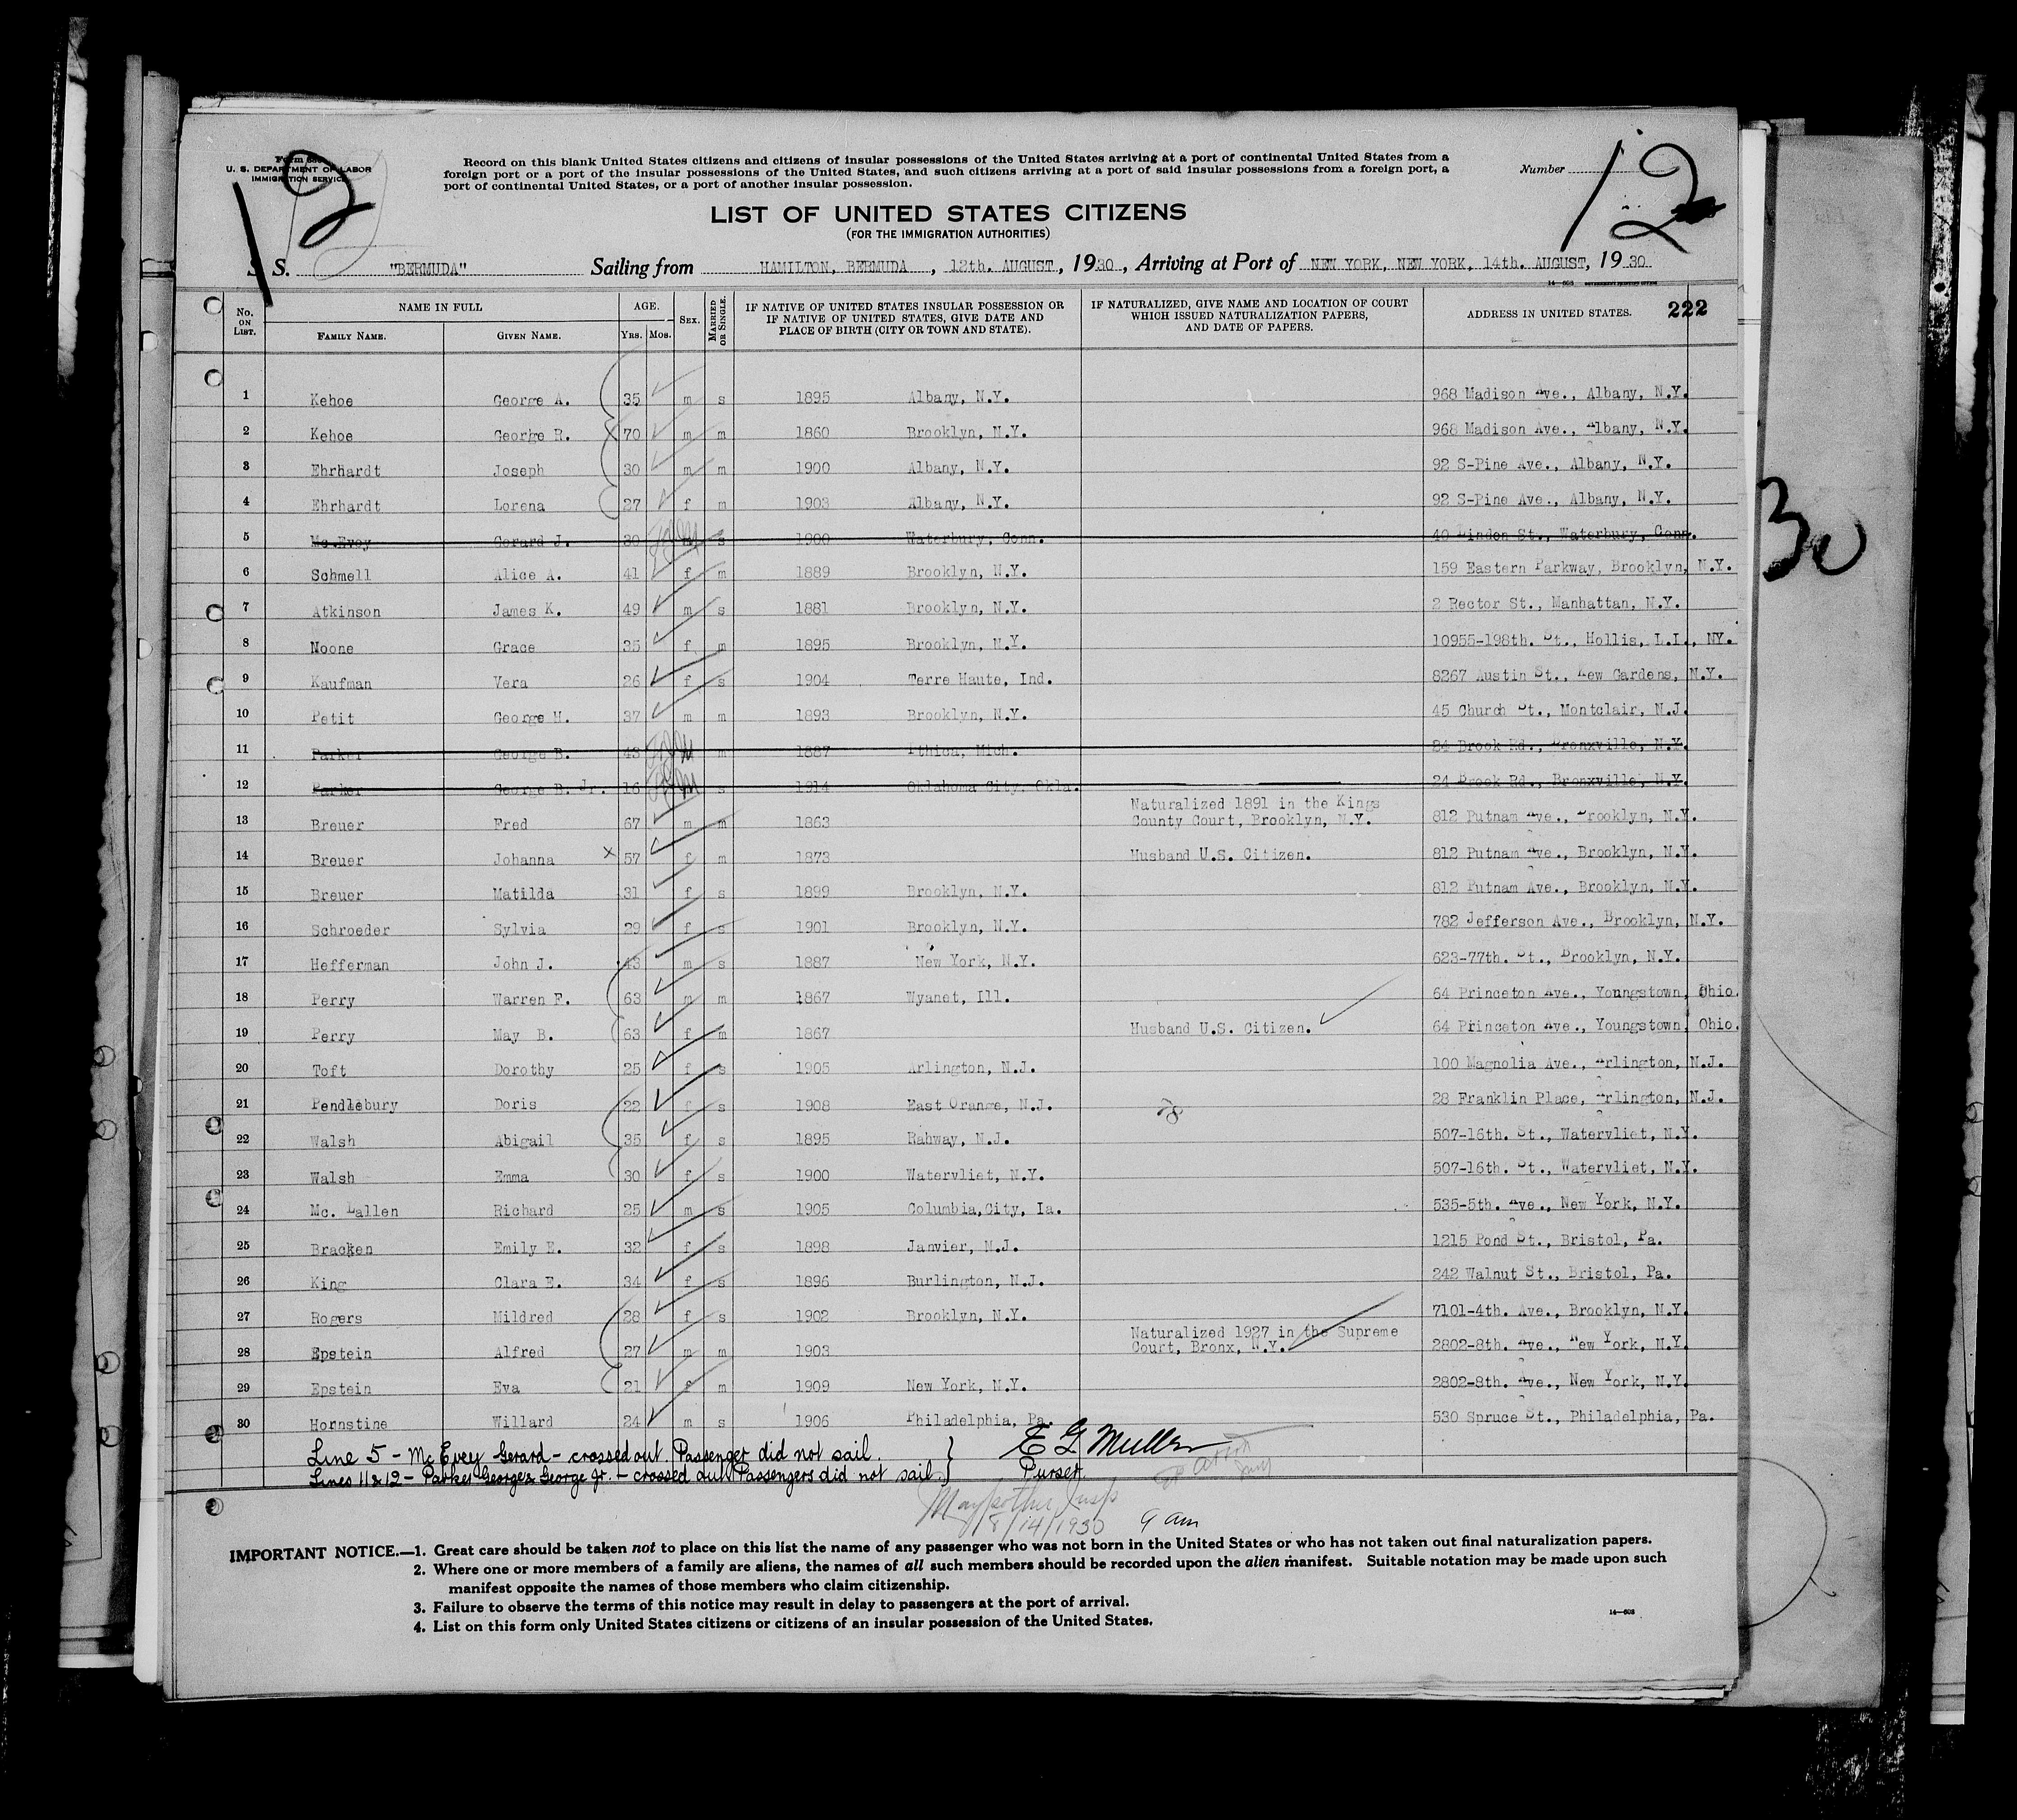 12
Form 630
U. S. DEPARTMENT OF LABOR
IMMIGRATION SERVICE
Record on this blank United States citizens and citizens of insular possessions of the United States arriving at a port of continental United States from a
foreign port or a port of the insular possessions of the United States, and such citizens arriving at a port of said insular possessions from a foreign port, a
port of continental United States, or a port of another insular possession.
Number
12
LIST OF UNITED STATES CITIZENS
(FOR THE IMMIGRATION AUTHORITIES)
S. S. "BERMUDA" Sailing from HAMILTON, BERMUDA, 12th. AUGUST, 1930, Arriving at Port of NEW YORK, NEW YORK, 14th. AUGUST, 1930
14—608 GOVERNMENT PRINTING OFFICE
No. ON LIST. NAME IN FULL FAMILY NAME. GIVEN NAME. AGE. YRS. MOS. SEX. MARRIED OR SINGLE. IF NATIVE OF UNITED STATES INSULAR POSSESSION OR IF NATIVE OF UNITED STATES, GIVE DATE AND PLACE OF BIRTH (CITY OR TOWN AND STATE). IF NATURALIZED, GIVE NAME AND LOCATION OF COURT WHICH ISSUED NATURALIZATION PAPERS, AND DATE OF PAPERS. ADDRESS IN UNITED STATES. 222
1 Kehoe George A. 35 m s 1895 Albany, N.Y. 968 Madison Ave., Albany, N.Y.
2 Kehoe George R. 70 m m 1860 Brooklyn, N.Y. 968 Madison Ave., Albany, N.Y.
3 Ehrhardt Joseph 30 m m 1900 Albany, N.Y. 92 S-Pine Ave., Albany, N.Y.
4 Ehrhardt Lorena 27 f m 1903 Albany, N.Y. 92 S-Pine Ave., Albany, N.Y.
5 Mc.Evoy Gerard J. 30 m s 1900 Waterbury, Conn. 40 Linden St., Waterbury, Conn.
6 Schmell Alice A. 41 f m 1889 Brooklyn, N.Y. 159 Eastern Parkway, Brooklyn, N.Y.
7 Atkinson James K. 49 m s 1881 Brooklyn, N.Y. 2 Rector St., Manhattan, N.Y.
8 Noone Grace 35 f m 1895 Brooklyn, N.Y. 10955-198th. St., Hollis, L.I., NY.
9 Kaufman Vera 26 f s 1904 Terre Haute, Ind. 8267 Austin St., Kew Gardens, N.Y.
10 Petit George H. 37 m m 1893 Brooklyn, N.Y. 45 Church St., Montclair, N.J.
11 Parker George B. 43 m 1887 Ithica, Mich. 24 Brook Rd., Bronxville, N.Y.
12 Parker George B. Jr. 16 s 1914 Oklahoma City, Okla. 24 Brook Rd., Bronxville, N.Y.
13 Breuer Fred 67 m m 1863 Naturalized 1891 in the Kings County Court, Brooklyn, N.Y. 812 Putnam Ave., Brooklyn, N.Y.
14 Breuer Johanna x 57 f m 1873 Husband U.S. Citizen. 812 Putnam Ave., Brooklyn, N.Y.
15 Breuer Matilda 31 f s 1899 Brooklyn, N.Y. 812 Putnam Ave., Brooklyn, N.Y.
16 Schroeder Sylvia 29 f s 1901 Brooklyn, N.Y. 782 Jefferson Ave., Brooklyn, N.Y.
17 Hefferman John J. 43 m s 1887 New York, N.Y. 623-77th. St., Brooklyn, N.Y.
18 Perry Warren F. 63 m m 1867 Wyanet, Ill. 64 Princeton Ave., Youngstown, Ohio.
19 Perry May B. 63 f m 1867 Husband U.S. Citizen. 64 Princeton Ave., Youngstown, Ohio.
20 Toft Dorothy 25 f s 1905 Arlington, N.J. 100 Magnolia Ave., Arlington, N.J.
21 Pendlebury Doris 22 f s 1908 East Orange, N.J. 28 Franklin Place, Arlington, N.J.
22 Walsh Abigail 35 f s 1895 Rahway, N.J. 507-16th. St., Watervliet, N.Y.
23 Walsh Emma 30 f s 1900 Watervliet, N.Y. 507-16th. St., Watervliet, N.Y.
24 Mc. Lallen Richard 25 m s 1905 Columbia,City, Ia. 535-5th. Ave., New York, N.Y.
25 Bracken Emily E. 32 f s 1898 Janvier, N.J. 1215 Pond St., Bristol, Pa.
26 King Clara E. 34 f s 1896 Burlington, N.J. 242 Walnut St., Bristol, Pa.
27 Rogers Mildred 28 f s 1902 Brooklyn, N.Y. 7101-4th. Ave., Brooklyn, N.Y.
28 Epstein Alfred 27 m m 1903 Naturalized 1927 in the Supreme Court, Bronx, N.Y. 2802-8th. Ave., New York, N.Y.
29 Epstein Eva 21 f m 1909 New York, N.Y. 2802-8th. Ave., New York, N.Y.
30 Hornstine Willard 24 m s 1906 Philadelphia, Pa. 530 Spruce St., Philadelphia, Pa.
Line 5 - Mc Evey Gerard - crossed out. Passenger did not sail.
Lines 11 & 12 - Parker George & George Jr. - crossed out Passengers did not sail.
E G Muller
Purser
8/14/1930 9 am
IMPORTANT NOTICE.—1. Great care should be taken not to place on this list the name of any passenger who was not born in the United States or who has not taken out final naturalization papers.
2. Where one or more members of a family are aliens, the names of all such members should be recorded upon the alien manifest. Suitable notation may be made upon such
manifest opposite the names of those members who claim citizenship.
3. Failure to observe the terms of this notice may result in delay to passengers at the port of arrival.
4. List on this form only United States citizens or citizens of an insular possession of the United States.
14—608
30